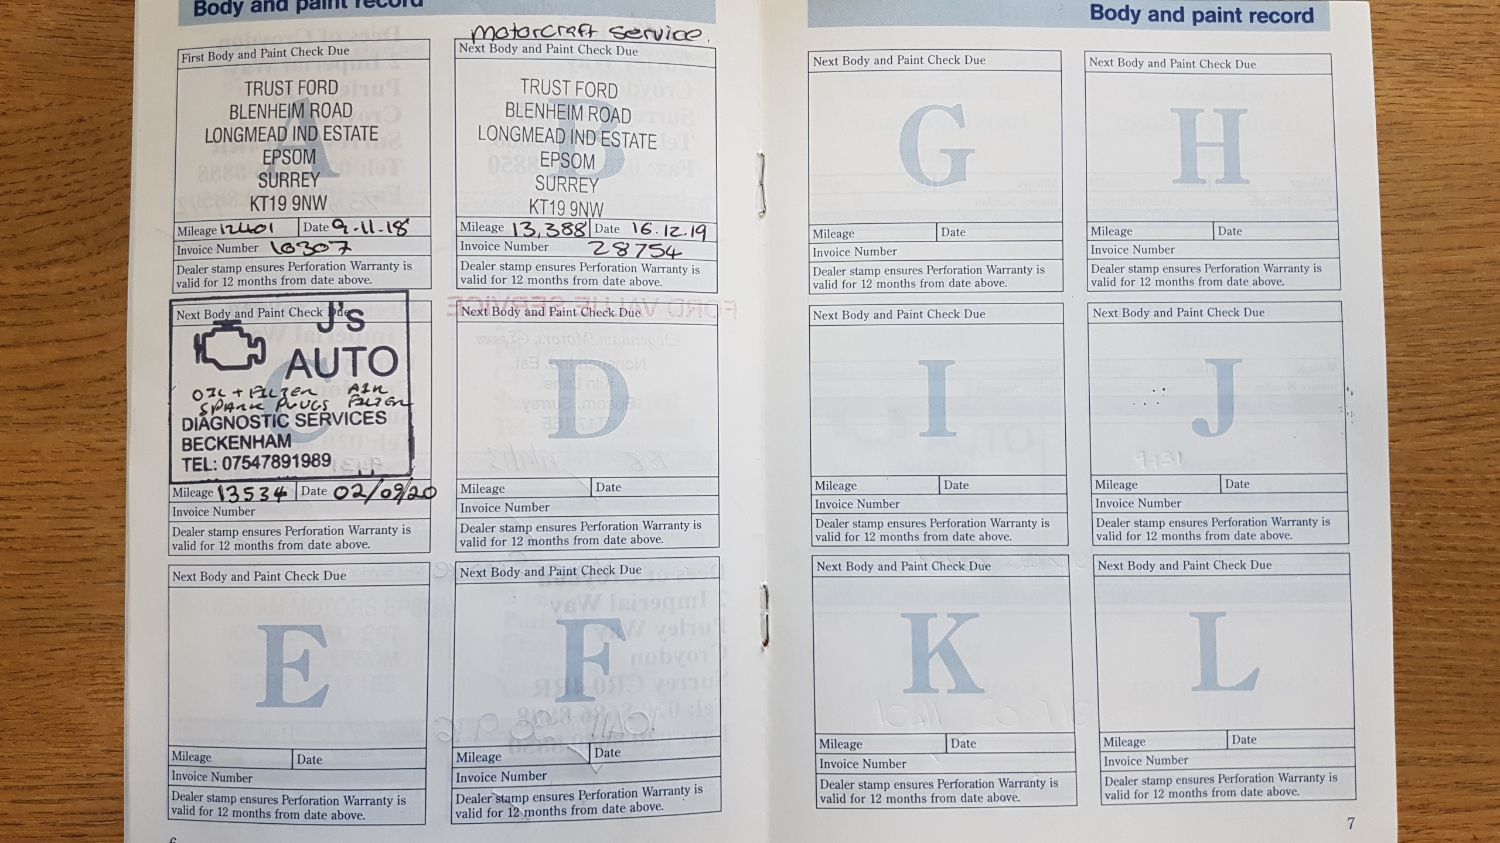 Body and paint record
First Body and Paint Check Due
A
TRUST FORD
BLENHEIM ROAD
LONGMEAD IND ESTATE
EPSOM
SURREY
KT19 9NW
Mileage 12401 Date 9.11.18
Invoice Number 10307
Dealer stamp ensures Perforation Warranty is
valid for 12 months from date above.
Motorcraft Service.
Next Body and Paint Check Due
B
TRUST FORD
BLENHEIM ROAD
LONGMEAD IND ESTATE
EPSOM
SURREY
KT19 9NW
Mileage 13,388 Date 16.12.19
Invoice Number 28754
Dealer stamp ensures Perforation Warranty is
valid for 12 months from date above.
Next Body and Paint Check Due
C
J's
AUTO
OIL + FILTER AIR
SPARK PLUGS FILTER
DIAGNOSTIC SERVICES
BECKENHAM
TEL: 07547891989
Mileage 13534 Date 02/09/20
Invoice Number
Dealer stamp ensures Perforation Warranty is
valid for 12 months from date above.
Next Body and Paint Check Due
D
Mileage Date
Invoice Number
Dealer stamp ensures Perforation Warranty is
valid for 12 months from date above.
Next Body and Paint Check Due
E
Mileage Date
Invoice Number
Dealer stamp ensures Perforation Warranty is
valid for 12 months from date above.
Next Body and Paint Check Due
F
Mileage Date
Invoice Number
Dealer stamp ensures Perforation Warranty is
valid for 12 months from date above.
Body and paint record
Next Body and Paint Check Due
G
Mileage Date
Invoice Number
Dealer stamp ensures Perforation Warranty is
valid for 12 months from date above.
Next Body and Paint Check Due
H
Mileage Date
Invoice Number
Dealer stamp ensures Perforation Warranty is
valid for 12 months from date above.
Next Body and Paint Check Due
I
Mileage Date
Invoice Number
Dealer stamp ensures Perforation Warranty is
valid for 12 months from date above.
Next Body and Paint Check Due
J
Mileage Date
Invoice Number
Dealer stamp ensures Perforation Warranty is
valid for 12 months from date above.
Next Body and Paint Check Due
K
Mileage Date
Invoice Number
Dealer stamp ensures Perforation Warranty is
valid for 12 months from date above.
Next Body and Paint Check Due
L
Mileage Date
Invoice Number
Dealer stamp ensures Perforation Warranty is
valid for 12 months from date above.
7